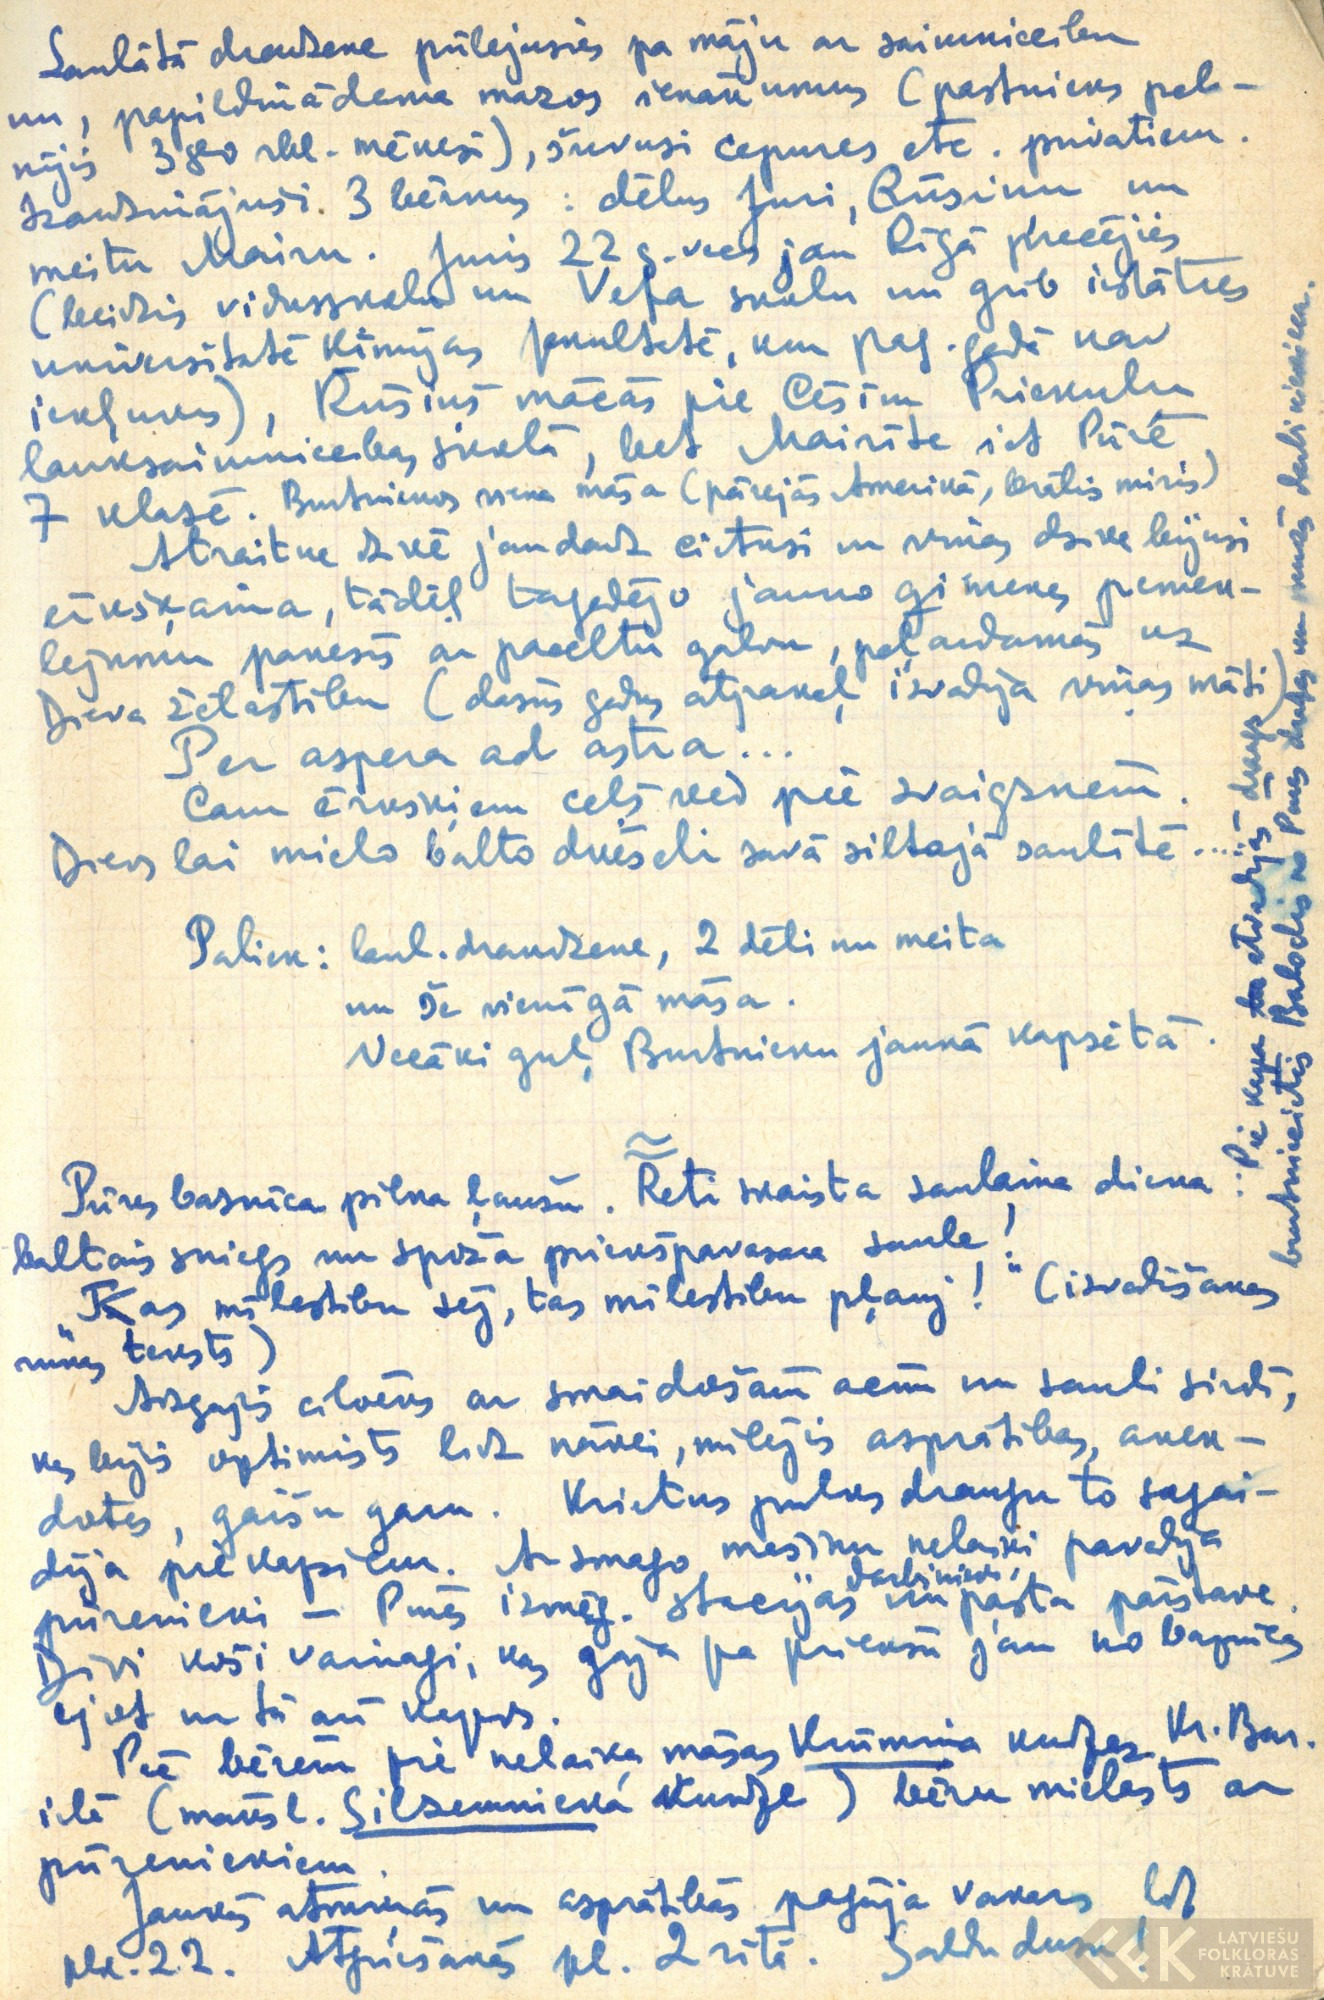 Laulātā draudzene pūlējusies pa māju ar saimniecību
un, papildinādama mazos ienākumus (pastnieks pel-
nījis 3 rbl. mēnesī), šuvusi cepures etc. privātiem.
Izaudzinājuši 3 bērnus: dēlus Juri, Rūsiņu un
meitu Mairu. Juris 22 g. vecs jau Rīgā precējies
(beidzis vidusskolu un Vefa skolu un grib iestāties
universitātē Ķīmijas fakultātē, kur pag. gadā nav
iekļuvis), Rūsiņš mācās pie Cēsīm Priekuļu
lauksaimniecības skolā, bet Mairīte iet Pūrē
7 klasē. Burtniekos viena māsa (pārējās Amerikā, brālis miris)
Atraitne dzīvē jau daudz cietusi un viņas dzīve bijusi
ērkšķaina, tādēļ tagadējo jauno ģimenes piemek-
lējumu panesīs ar paceltu galvu, paļaudamās uz
Dieva žēlastību (desmit gadus atpakaļ izvadīja viņas māti)
Per aspera ad astra...
Caur ērkšķiem ceļš ved pie zvaigznēm.
Dievs lai mielo balto dvēseli savā siltajā saulītē...
Paliek: laul. draudzene, 2 dēli un meita
un še vienīgā māsa.
Vecāki guļ Burtnieku jaunā kapsētā.
Pie kapa atvadījās draugs
burtniecietis Balodis no Pūres draudzes un mūsās darbinieki
Pūres baznīca pilna ļaužu. Reti skaista saulaina diena:
baltais sniegs un spoža priekšpavasara saule!
"Kas mīlestību sēj, tas mīlestību pļauj!" (izvadīšanas
runas teksts)
Aizgājis cilvēks ar smaidošām acīm un sauli sirdī,
kas bijis optimists līdz nāvei, mīlējis asprātības, anek-
dotes, gaišu garu. Krietns pulks draugu to sagai-
dīja pie kapiem. Ar smago mašīnu nelaiķi pavadīja
pūrenieki – Pūres izmēģ. stacijas darbinieki un pasta pārstāve.
Divi koši vainagi, kas gāja pa priekšu jau no baznīcas
ejot un tā arī kapos.
Pēc bērēm pie nelaiķa māsas Krūmiņa kundzes Kr. Bar.
ielā (māksl. Silzemnieka kundze) bēru mielasts ar
pūreniekiem.
Jaukās atmiņās un asprātībās pagāja vakars līdz
plkt. 22. Atgriešanās pl. 2 rītā. Saldu dusu!
LATVIEŠU
FOLKLORAS
KRĀTUVE